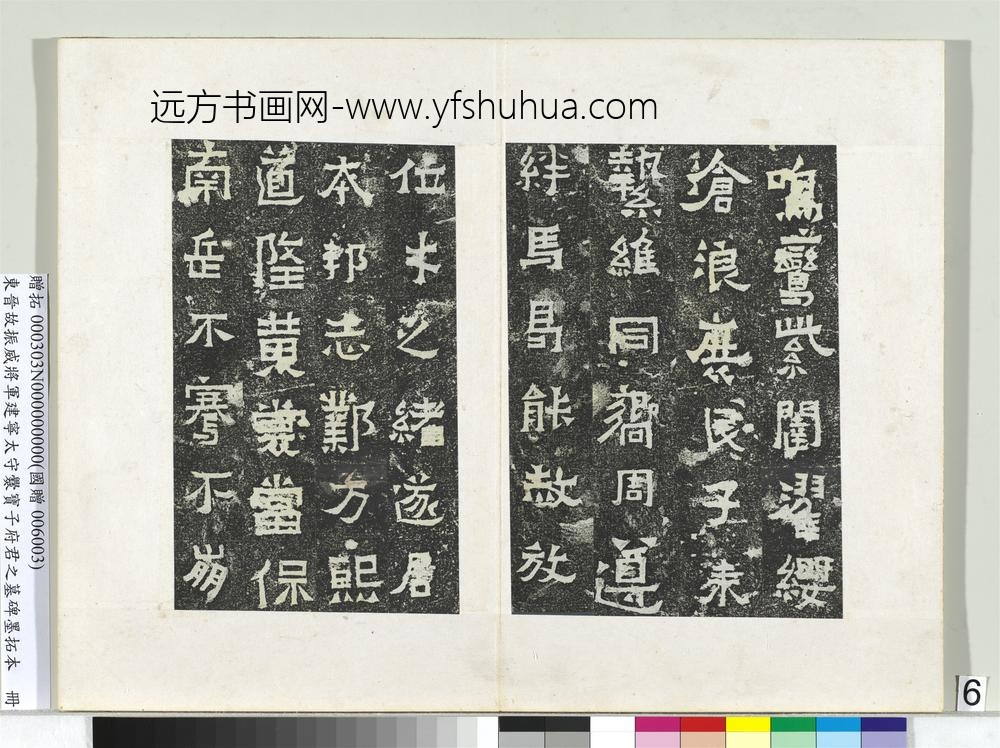 远方书画网-www.yfshuhua.com
鳴鸞紫闥濯纓
滄浪庶民子来
縶維同嚮周遵
絆馬曷能赦放
位才之緒遂居
本邦志鄴方熙
道隆黃裳當保
南岳不騫不崩
贈拓 000303N000000000(國贈 006003)
東晉故振威將軍建寧太守爨寶子府君之墓碑墨拓本 冊
6